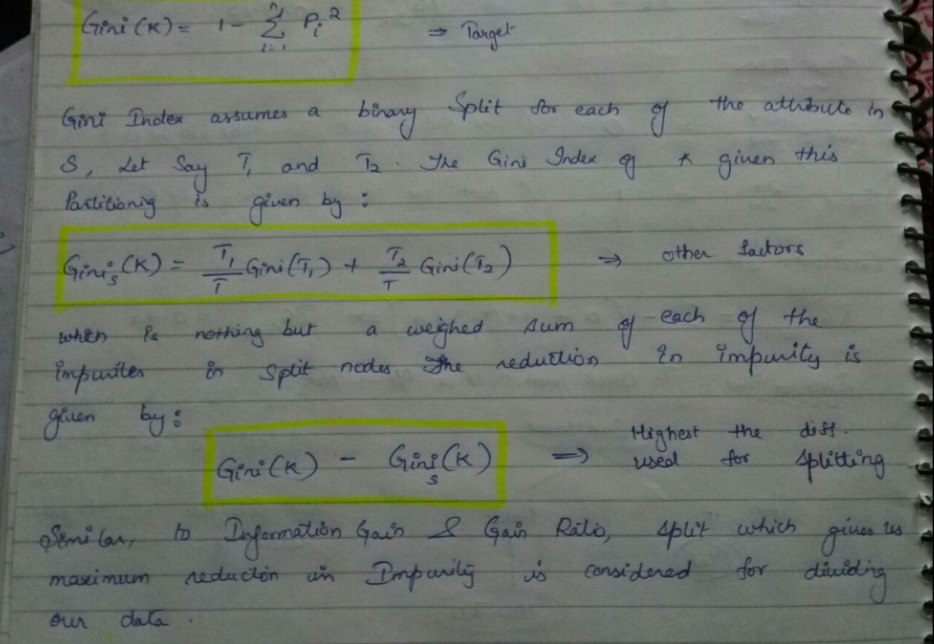 Gini (K) = 1 - n Σ i=1 Pi² ⇒ Target
Gini Index assumes a binary Split for each of the attribute in
S, Let Say T1 and T2. The Gini Index of K given this
Partitioning is given by :
Ginis (K) = T1/T Gini (T1) + T2/T Gini (T2) ⇒ other factors
which is nothing but a weighed sum of each of the
impurites in split nodes The reduction in impurity is
given by :
Gini (K) - Ginis (K) ⇒ Highest the diff.
used for splitting
Similar, to Information Gain & Gain Ratio, split which gives us
maximum reduction in Impurity is considered for dividing
our data .